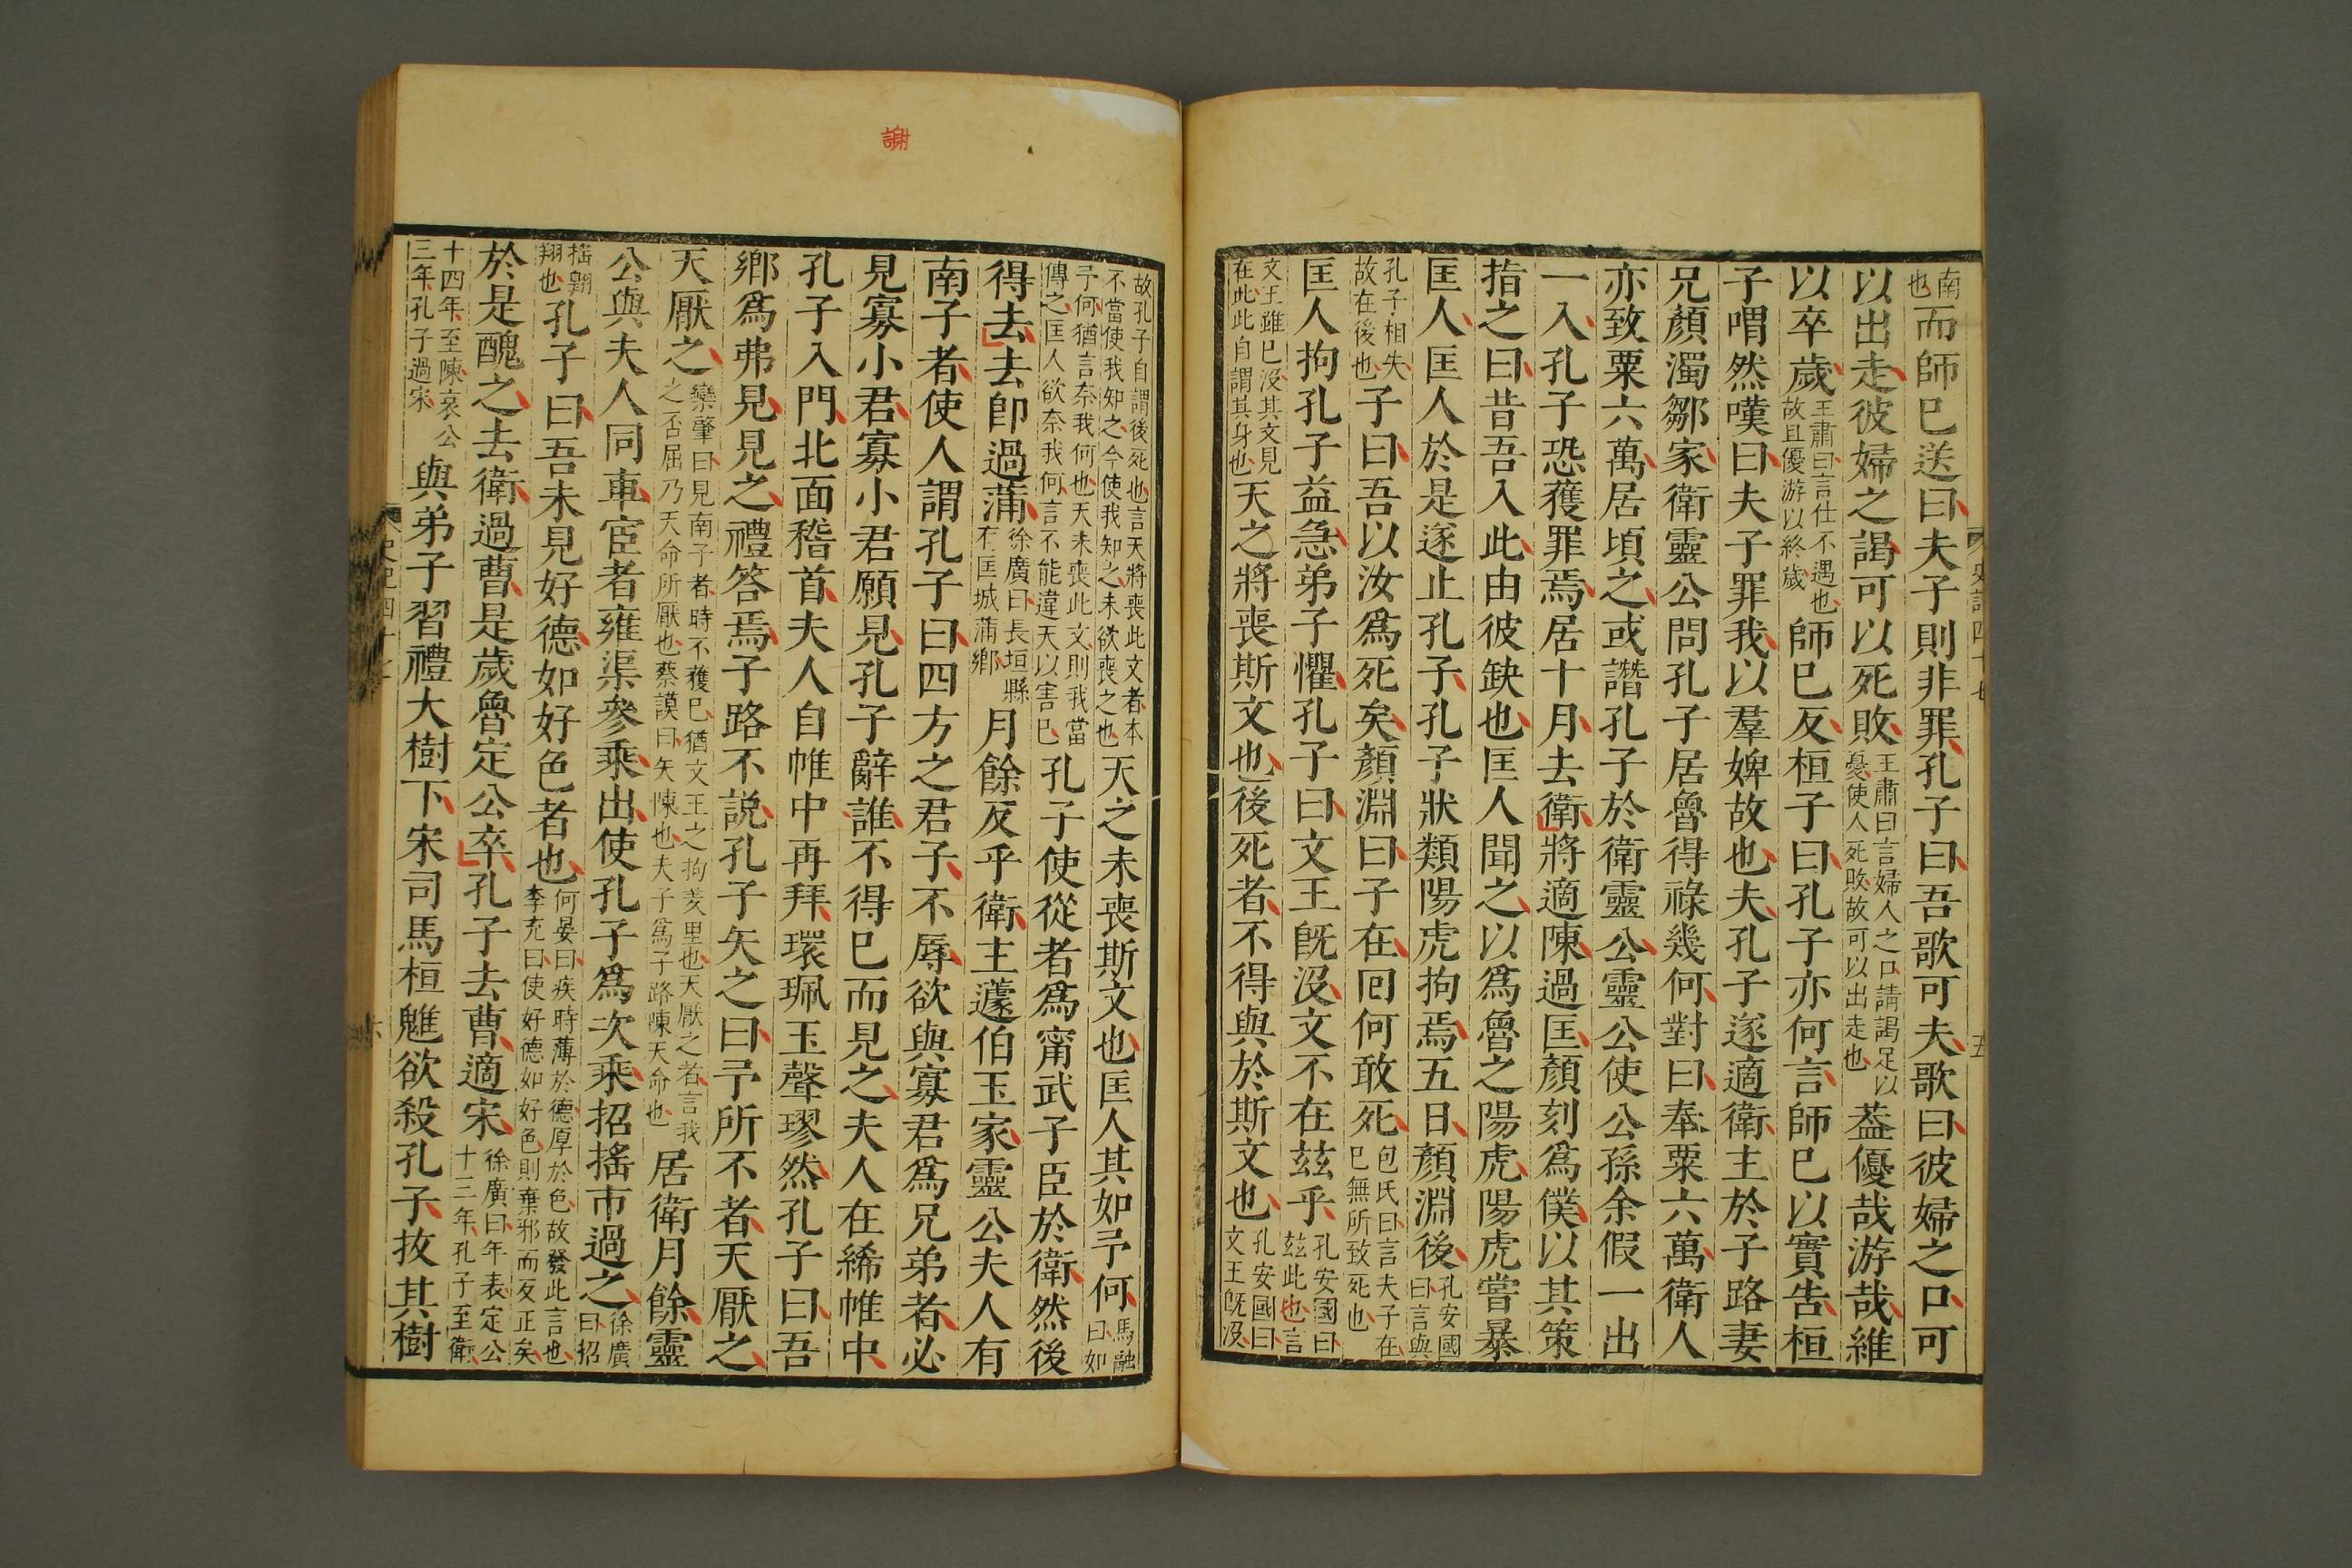 南也而師巳送曰夫子則非罪孔子曰吾歌可夫歌曰彼婦之口可
以出走彼婦之謁可以死敗王肅曰言婦人之口請謁足以憂使人死敗故可以出走也蓋優哉游哉維
以卒歲王肅曰言仕不遇也故且優游以終歲師巳反桓子曰孔子亦何言師巳以實告桓
子喟然嘆曰夫子罪我以羣婢故也夫孔子遂適衛主於子路妻
兄顏濁鄒家衛靈公問孔子居魯得祿幾何對曰奉粟六萬衛人
亦致粟六萬居頃之或譖孔子於衛靈公靈公使公孫余假一出
一入孔子恐獲罪焉居十月去衛將適陳過匡顏刻爲僕以其策
指之曰昔吾入此由彼缺也匡人聞之以爲魯之陽虎陽虎嘗暴
匡人匡人於是遂止孔子孔子狀類陽虎拘焉五日顏淵後孔安國曰言與
孔子相失故在後也子曰吾以汝爲死矣顏淵曰子在回何敢死包氏曰言夫子在巳無所致死也
匡人拘孔子益急弟子懼孔子曰文王旣沒文不在玆乎孔安國曰玆此也言
文王雖巳沒其文見在此此自謂其身也天之將喪斯文也後死者不得與於斯文也孔安國曰文王旣沒
史記四十七
五
謝
故孔子自謂後死也言天將喪此文者本不當使我知之今使我知之未欲喪之也天之未喪斯文也匡人其如予何馬融曰如
予何猶言奈我何也天未喪此文則我當傳之匡人欲奈我何言不能違天以害巳孔子使從者爲甯武子臣於衛然後
得去去卽過蒲徐廣曰長垣縣有匡城蒲鄉月餘反乎衛主蘧伯玉家靈公夫人有
南子者使人謂孔子曰四方之君子不辱欲與寡君爲兄弟者必
見寡小君寡小君願見孔子辭謝不得巳而見之夫人在絺帷中
孔子入門北面稽首夫人自帷中再拜環珮玉聲璆然孔子曰吾
鄉爲弗見見之禮答焉子路不說孔子矢之曰予所不者天厭之
天厭之欒肇曰見南子者時不獲巳猶文王之拘羑里也天厭之者言我之否屈乃天命所厭也蔡謨曰矢陳也夫子爲子路陳天命也居衛月餘靈
公與夫人同車宦者雍渠參乘出使孔子爲次乘招搖市過之徐廣曰招
搖翺翔也孔子曰吾未見好德如好色者也何晏曰疾時薄於德厚於色故發此言也李充曰使好德如好色則棄邪而反正矣
於是醜之去衛過曹是歲魯定公卒孔子去曹適宋徐廣曰年表定公十三年孔子至衛
十四年至陳哀公三年孔子過宋與弟子習禮大樹下宋司馬桓魋欲殺孔子拔其樹
史記四十七
六